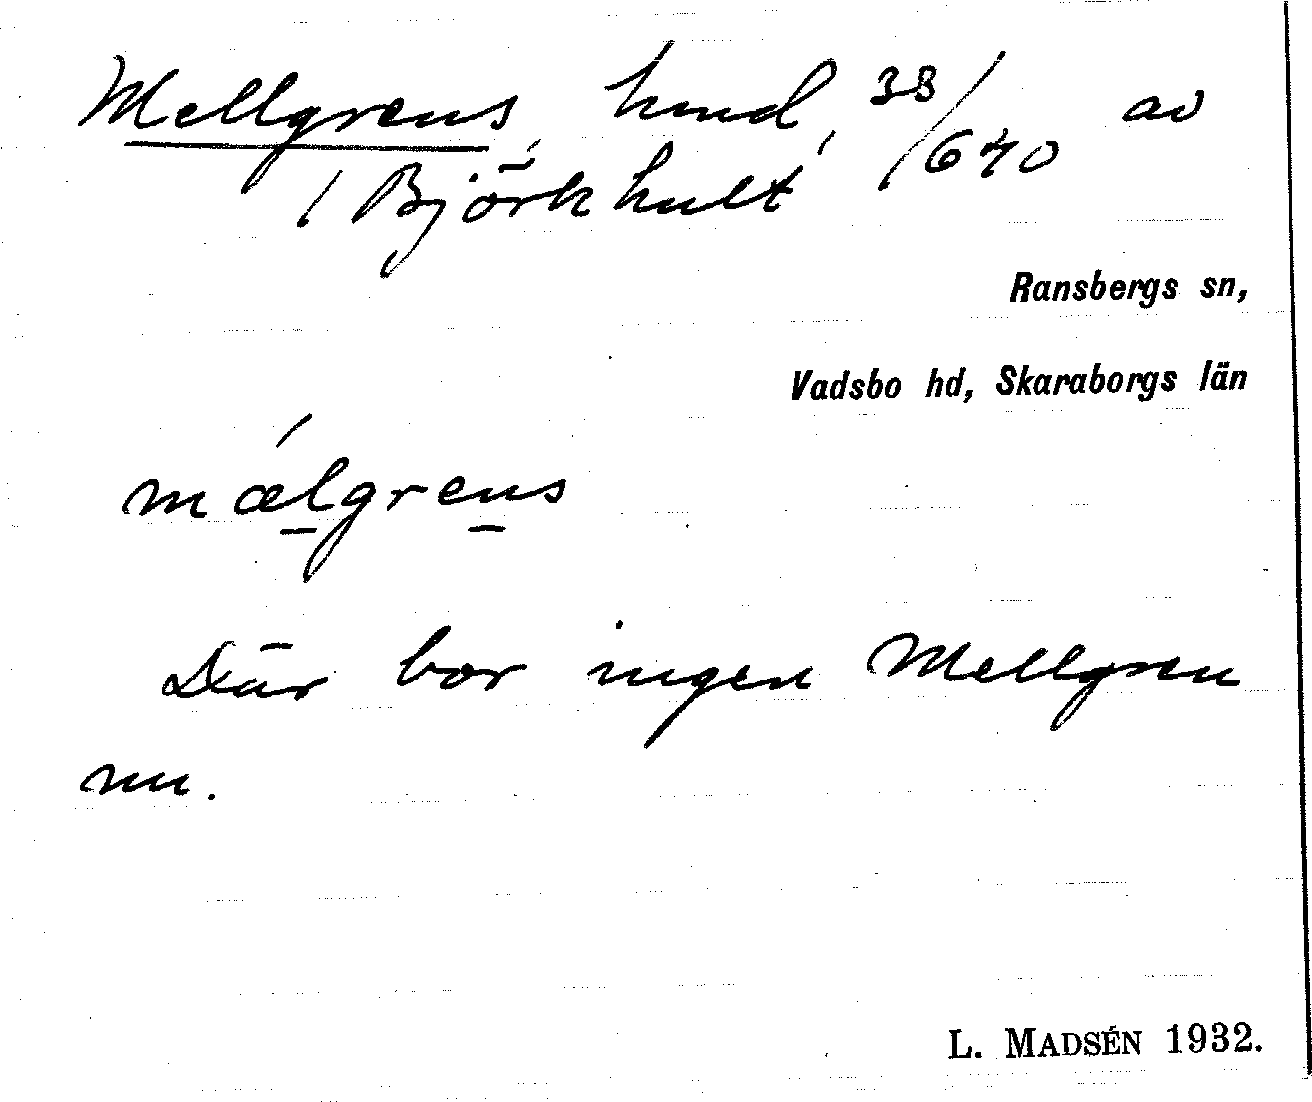 Mellgrens, hmd, 38/640 av
1 Björkhult
Ransbergs sn,
Vadsbo hd, Skaraborgs län
mælgrens
Där bor ingen Mellgren
nu.
L. MADSÉN 1932.